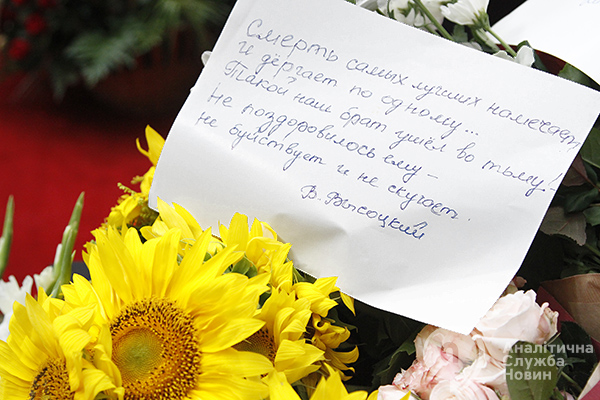 Смерть самых лучших намечает
и дёргает по одному...
Такой наш брат ушёл во тьму!-
Не поздоровилось ему -
не буйствует и не скучает.
В. Высоцкий
Аналітична
Служба
Новин